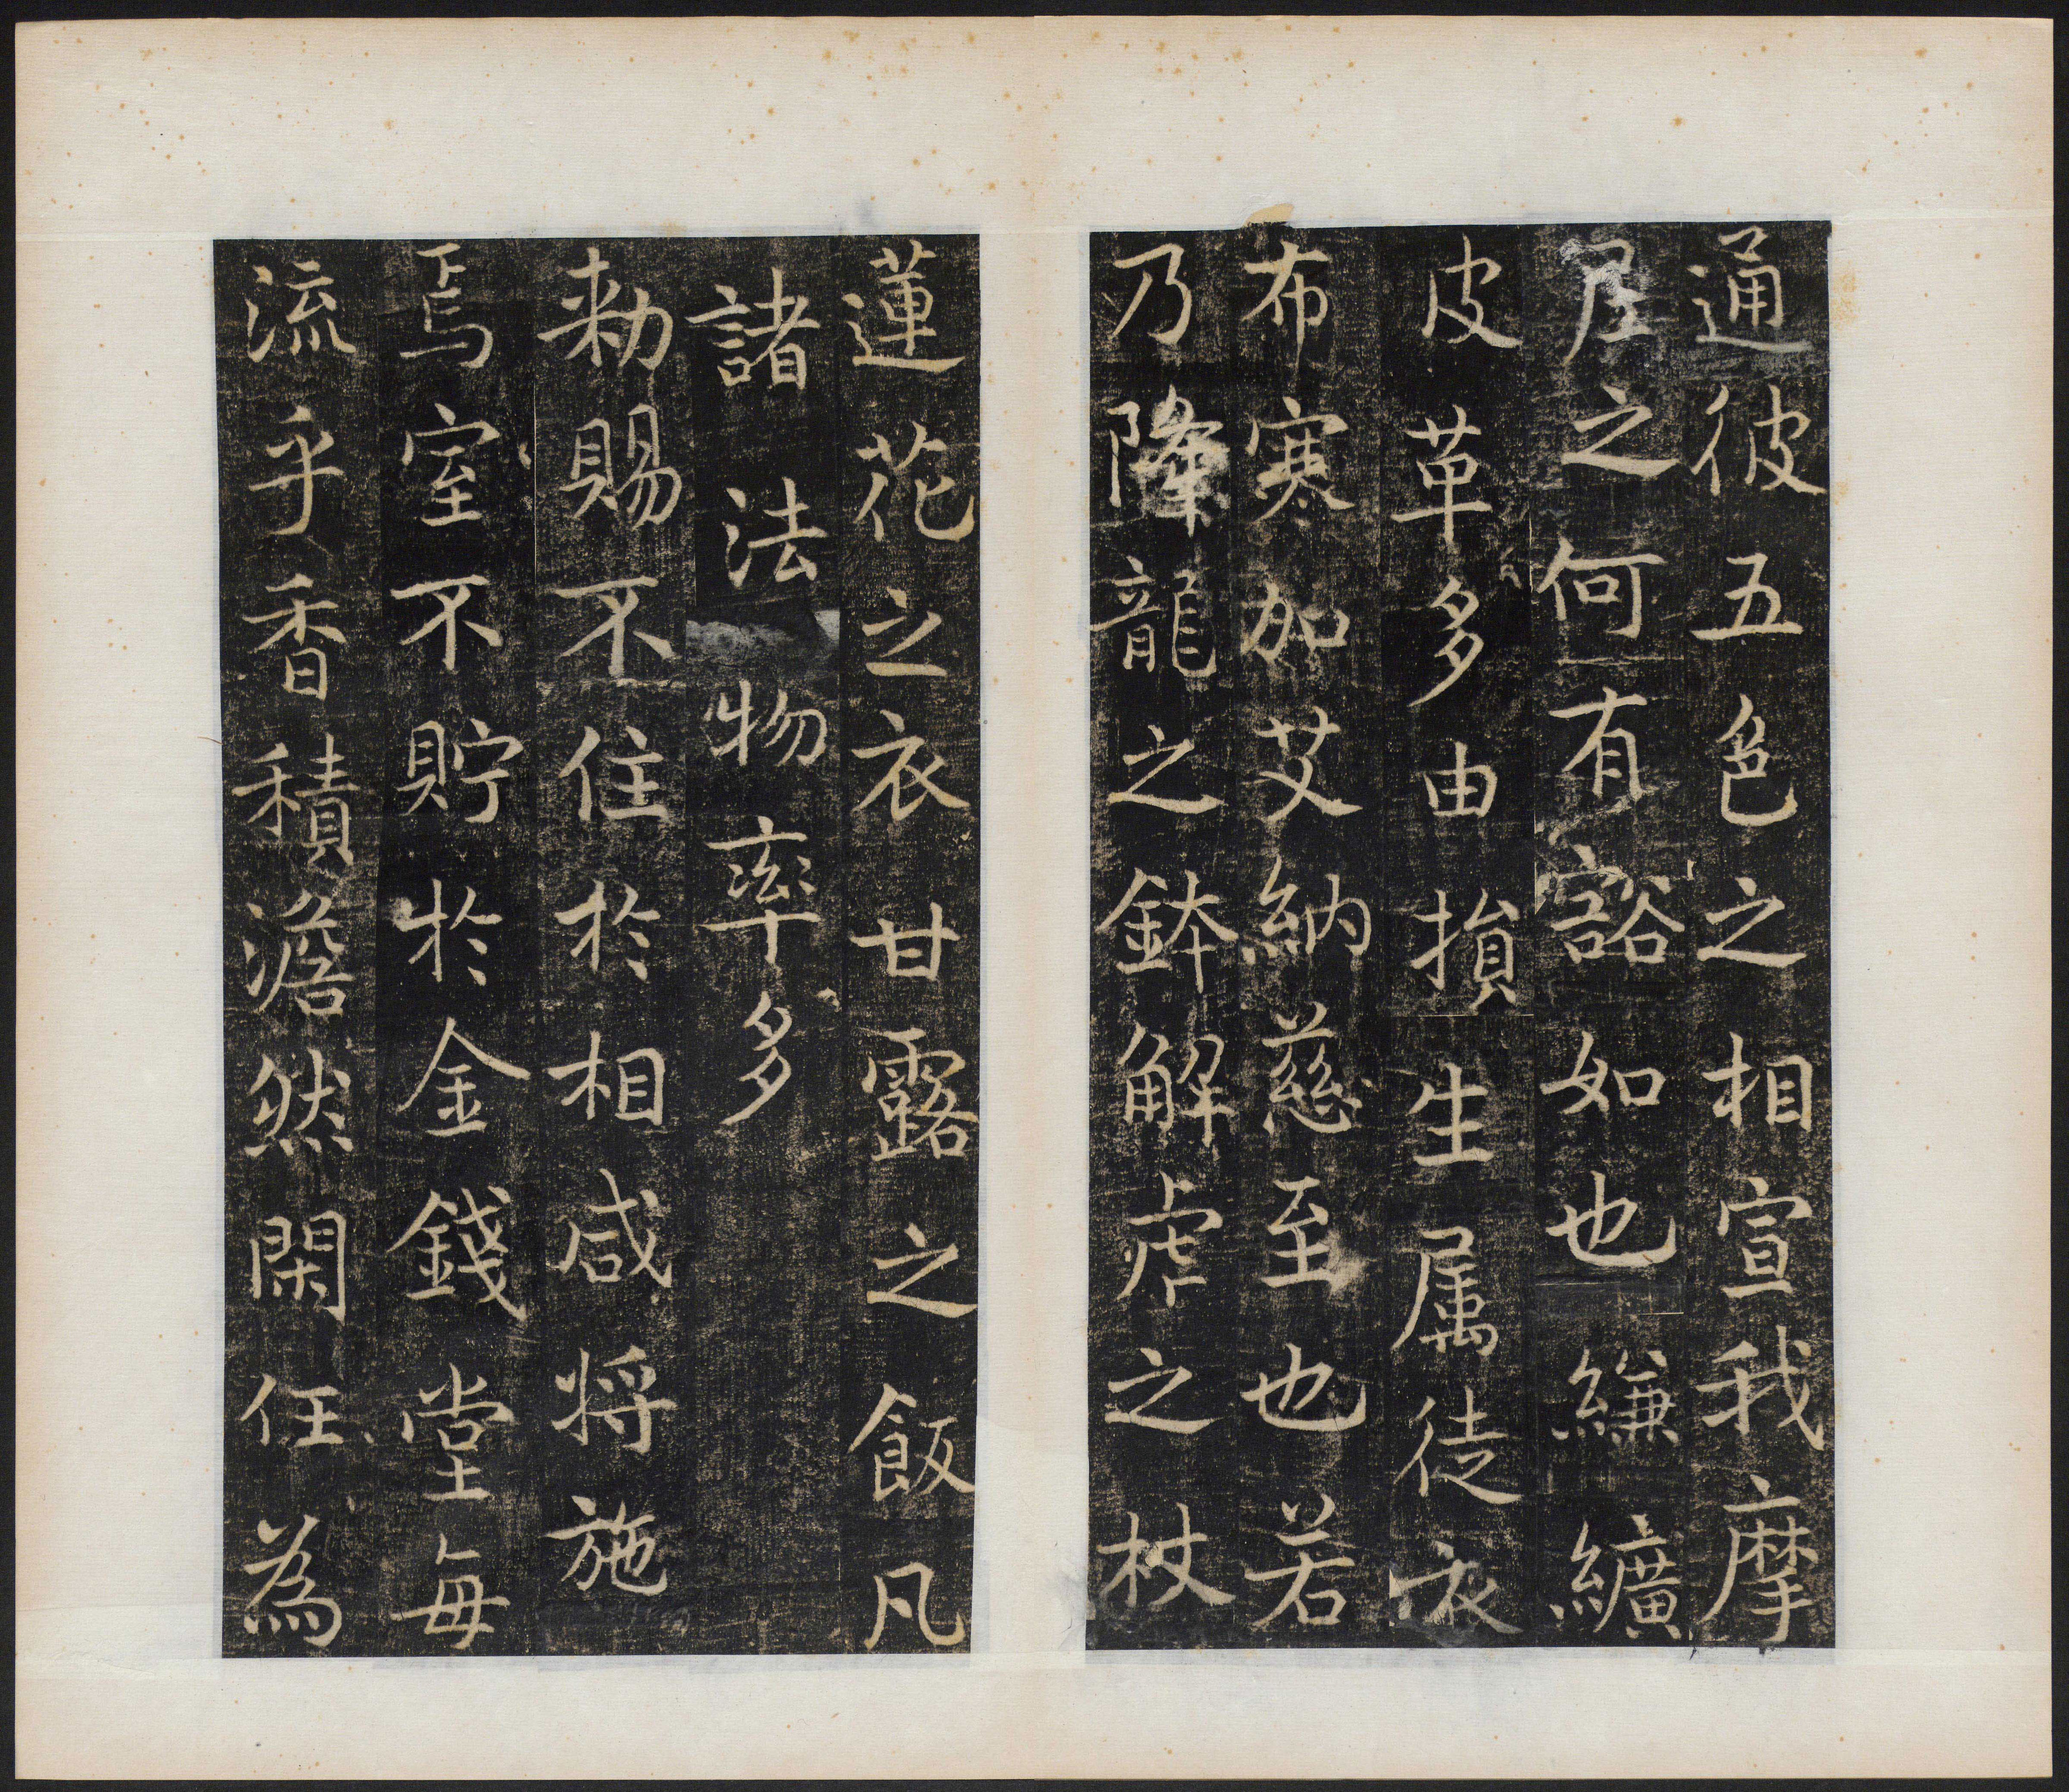 通彼五色之相宣我摩
尼之何有豁如也縑纊
皮革多由損生属徒衣
布寒加艾納慈至也若
乃降龍之鉢解虎之杖
蓮花之衣甘露之飯凡
諸法物率多
勅賜不住於相咸将施
焉室不貯於金錢堂每
流乎香積澹然閑任為